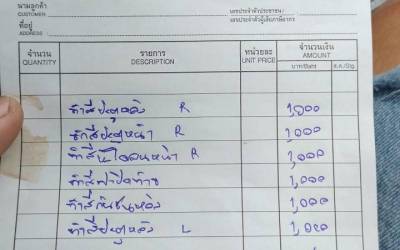 นามลูกค้า
CUSTOMER
เลขประจำตัวประชาชน /
เลขประจำตัวผู้เสียภาษีอากร
ที่อยู่
ADDRESS
จำนวน
QUANTITY
รายการ
DESCRIPTION
หน่วยละ
UNIT PRICE
จำนวนเงิน
AMOUNT
บาท/Baht
ส.ต./Stg.
ทำสีประตูหลัง R 1,000
ทำสีประตูหน้า R 1,000
ทำสี หน้า R 1,000
ทำสีฝาปิดท้าย 1,000
ทำสีกันชนหลัง 1,000
ทำสีประตูหลัง L 1,000